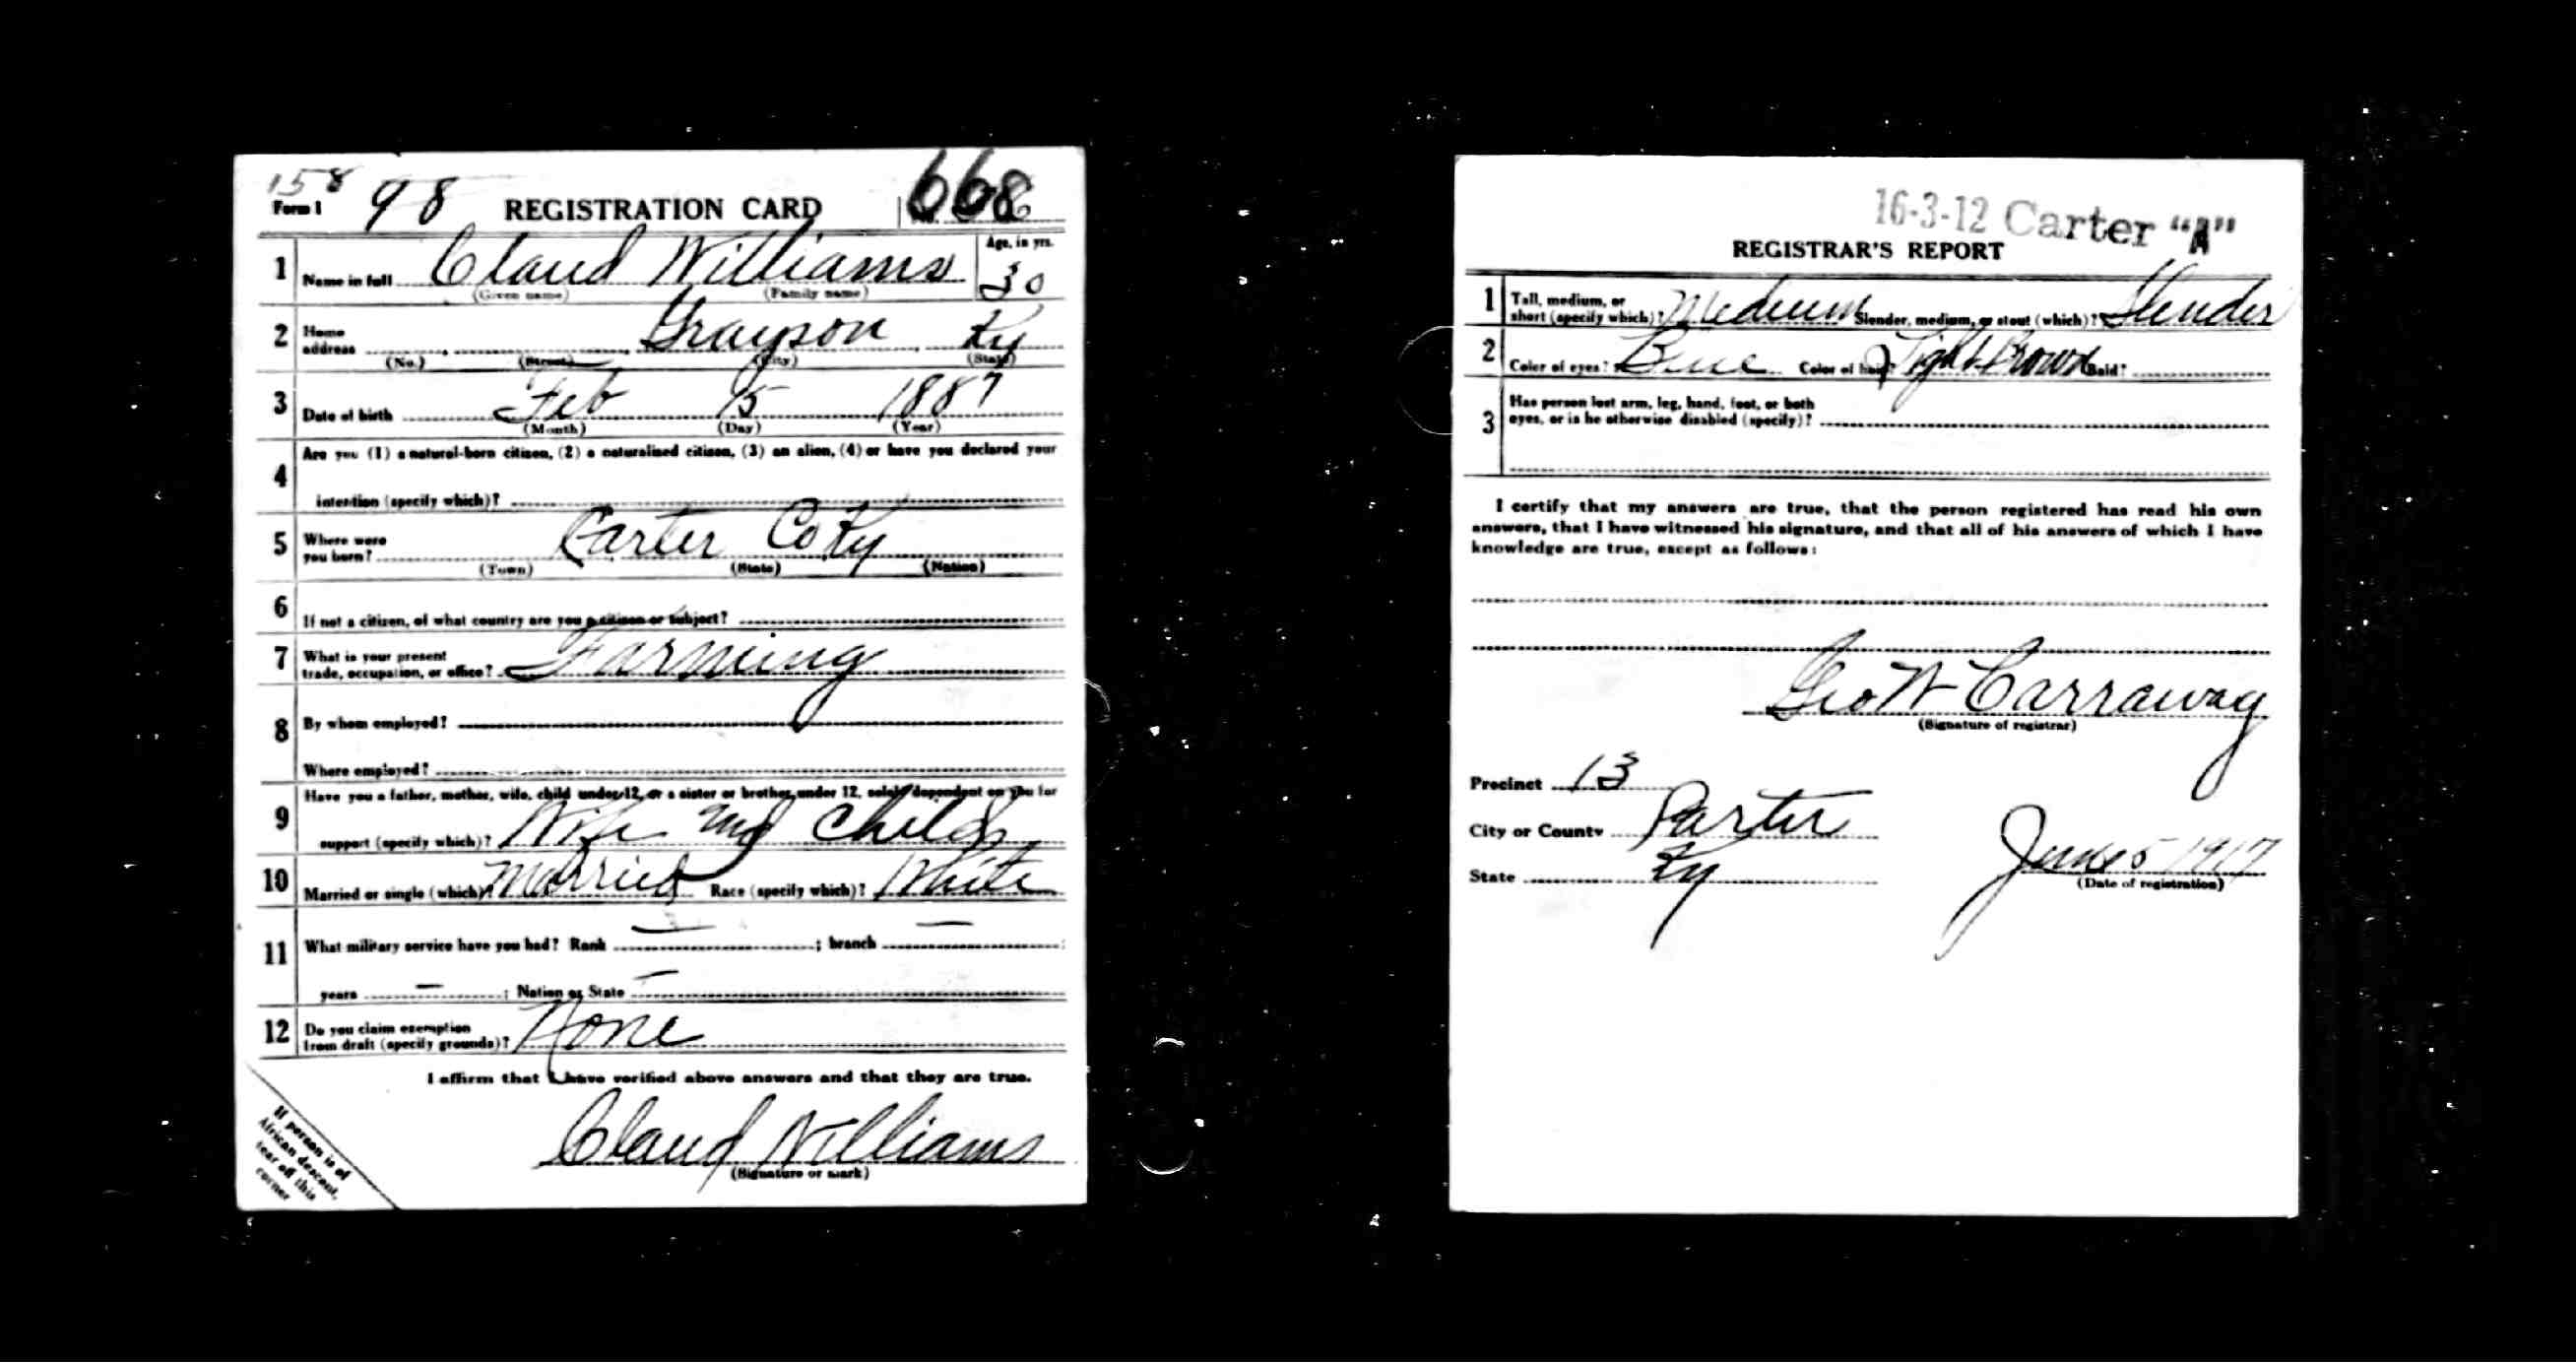 158
Form 1 98 REGISTRATION CARD No. 668
1 Name in full Claud Williams Age, in yrs. 30
(Given name) (Family name)
2 Home address Grayson Ky
(No.) (Street) (City) (State)
3 Date of birth Feb 15 1887
(Month) (Day) (Year)
4 Are you (1) a natural-born citizen, (2) a naturalized citizen, (3) an alien, (4) or have you declared your
intention (specify which)?
5 Where were you born? Carter Co Ky
(Town) (State) (Nation)
6 If not a citizen, of what country are you a citizen or subject?
7 What is your present trade, occupation, or office? Farming
8 By whom employed?
Where employed?
9 Have you a father, mother, wife, child under 12, or a sister or brother under 12, solely dependent on you for
support (specify which)? Wife and Childs
10 Married or single (which)? Married Race (specify which)? White
11 What military service have you had? Rank — ; branch — ;
years — ; Nation or State —
12 Do you claim exemption from draft (specify grounds)? None
I affirm that I have verified above answers and that they are true.
Claud Williams
(Signature or mark)
If person is of
African descent,
tear off this
corner
16-3-12 Carter "A"
REGISTRAR'S REPORT
1 Tall, medium, or short (specify which)? Medium Slender, medium, or stout (which)? Slender
2 Color of eyes? Blue Color of hair? Light Brown Bald?
3 Has person lost arm, leg, hand, foot, or both
eyes, or is he otherwise disabled (specify)?
I certify that my answers are true, that the person registered has read his own
answers, that I have witnessed his signature, and that all of his answers of which I have
knowledge are true, except as follows:
Geo W Carraway
(Signature of registrar)
Precinct 13
City or County Carter
State Ky
June 5 1917
(Date of registration)